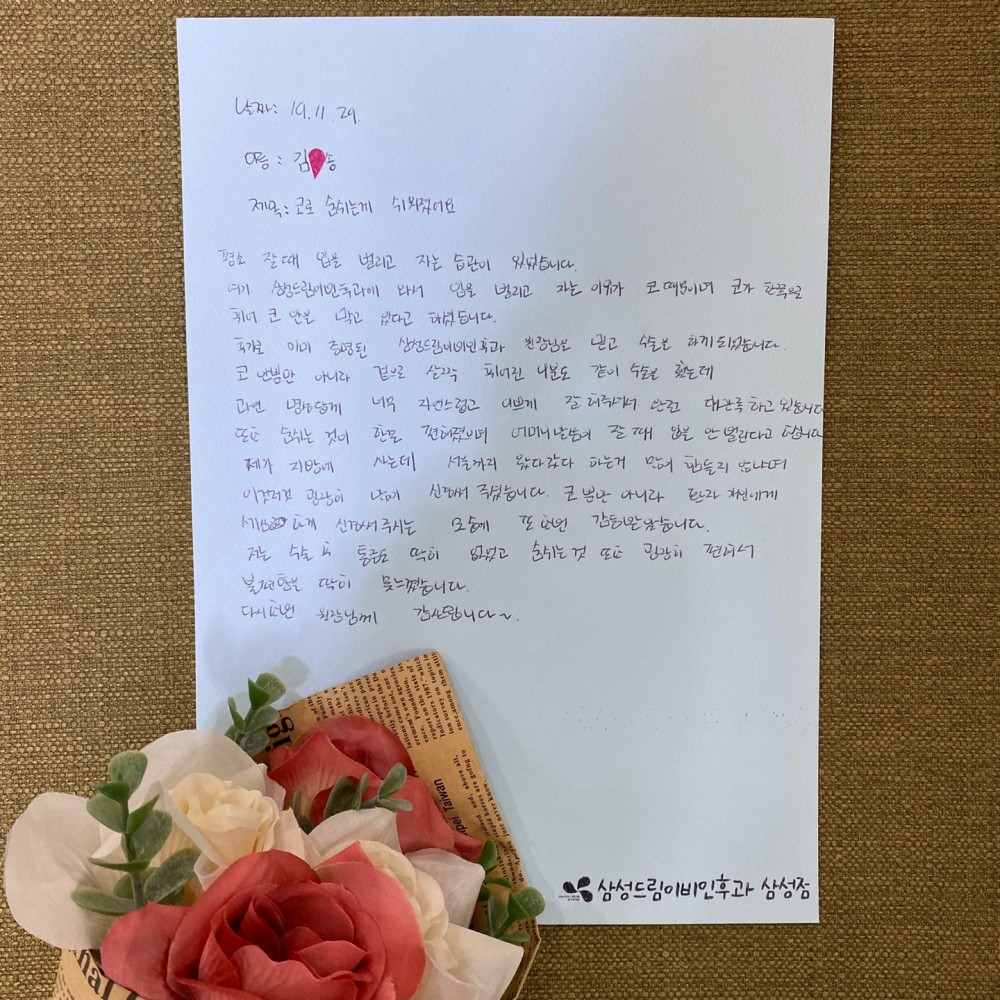 날짜: 19.11.29.
이름: 김 송
제목: 코로 숨쉬는게 쉬워졌어요
평소 잘때 입을 벌리고 자는 습관이 있었습니다.
여기 삼성드림이비인후과에 와서 입을 벌리고 자는 이유가 코 때문이며 코가 한쪽으로
휘어 코 안을 막고 있다고 하셨습니다.
후기로 이미 증명된 삼성드림이비인후과 원장님을 믿고 수술을 하게 되었습니다.
코 안뿐만 아니라 겉으로 살짝 휘어진 부분도 같이 수술을 했는데
과연 명성답게 너무 자연스럽고 이쁘게 잘 해주셔서 만족하고 있습니다
또한 숨쉬는 것이 한결 편해졌으며 어머니 말씀이 잘 때 입을 안 벌린다고 합니다
제가 지방에 사는데 서울까지 왔다갔다 하는거 많이 힘들지 않냐며
이것저것 굉장히 많이 신경써 주셨습니다. 코 뿐만 아니라 환자 자신에게
세심하게 신경써 주시는 모습에 또 한번 감동받았습니다.
저는 수술 후 통증도 딱히 없었고 숨쉬는 것 또한 굉장히 편해서
불편함을 딱히 못느꼈습니다.
다시한번 원장님께 감사드립니다~.
삼성드림이비인후과 삼성점
Taiwan